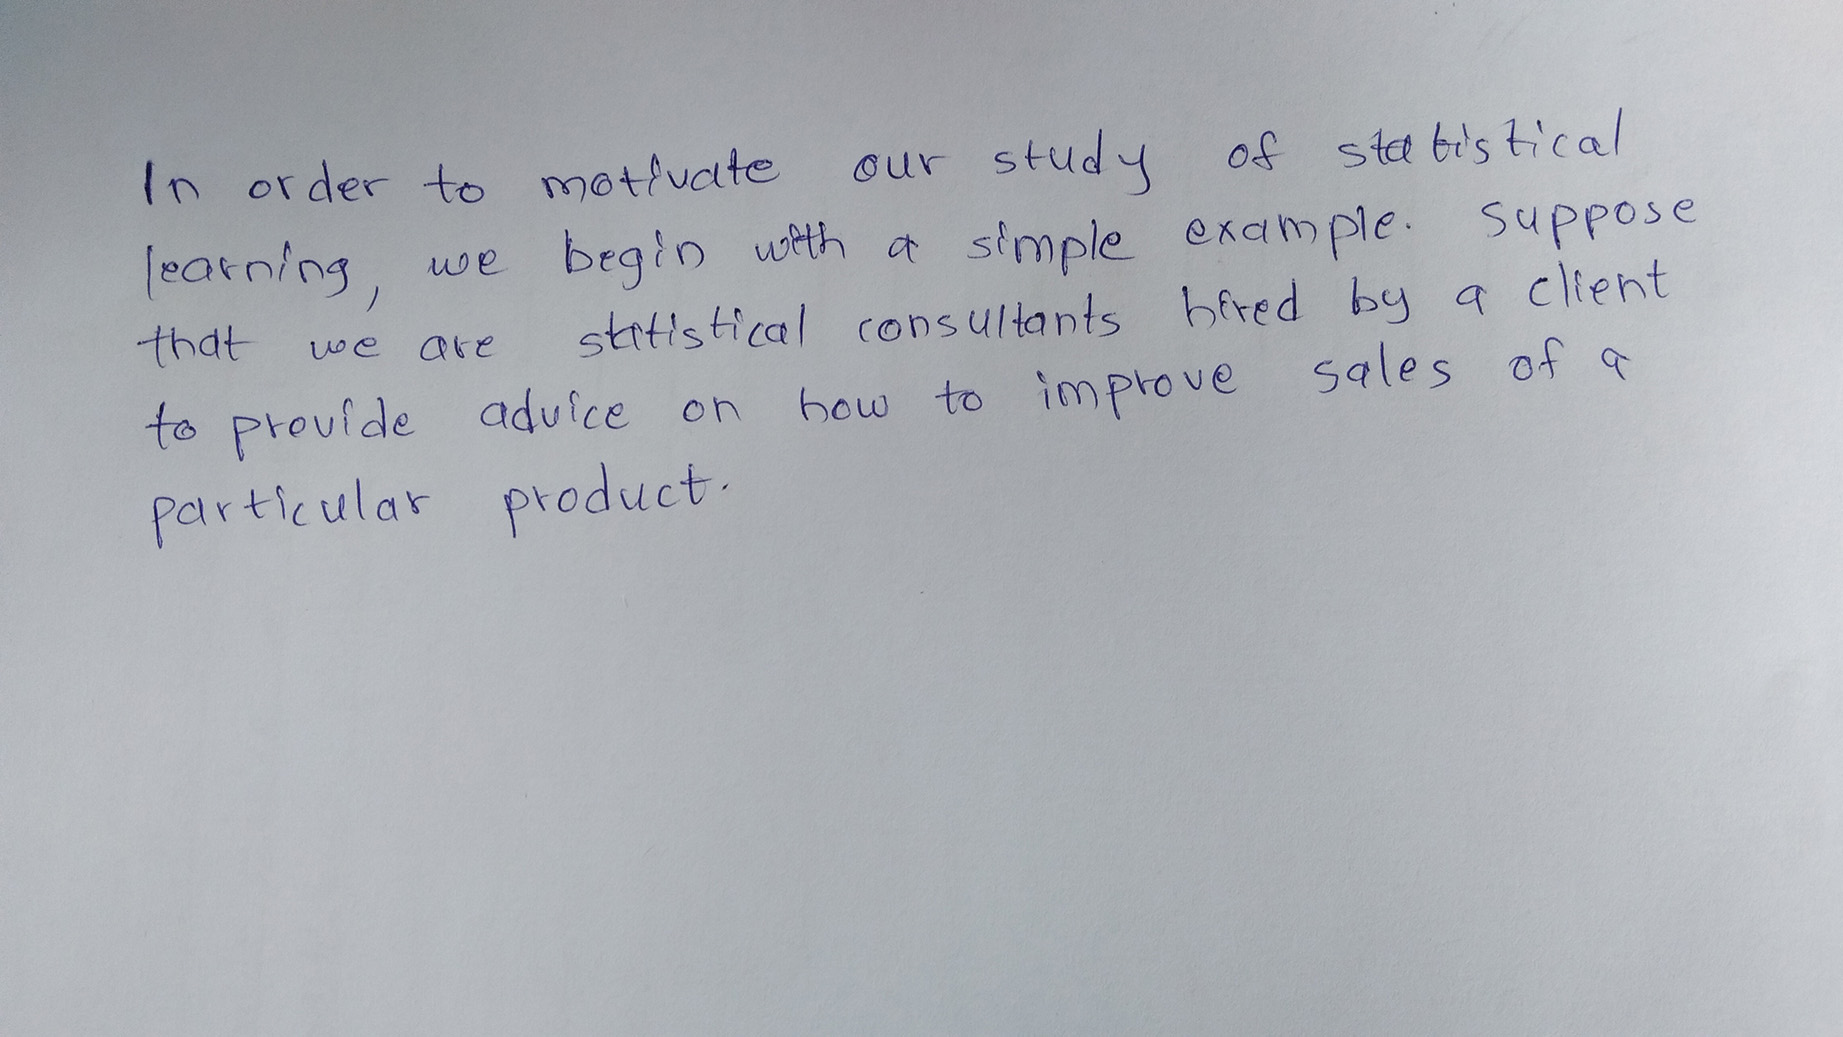 In order to motivate our study of statistical
learning, we begin with a simple example. Suppose
that we are statistical consultants hired by a client
to provide advice on how to improve sales of a
particular product.